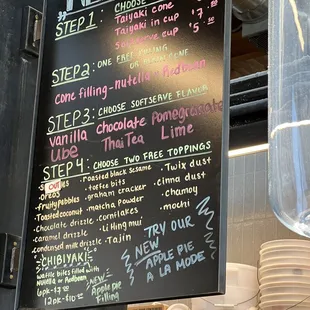 STEP 1: CHOOSE
Taiyaki cone $7
Taiyaki in cup
Softserve cup $5.50
STEP 2: ONE FREE FILLING
Cone filling - nutella or Redbean
STEP 3: CHOOSE SOFTSERVE FLAVOR
Vanilla Chocolate Pomegranate
Ube Thai Tea Lime
STEP 4: CHOOSE TWO FREE TOPPINGS
OUT
·oreos
·fruity pebbles
·Toasted coconut
·chocolate drizzle
·caramel drizzle
·condensed milk drizzle
·roasted black sesame
·toffee bits
·graham cracker
·matcha powder
·cornflakes
·Li hing mui
·Tajin
·Twix dust
·cinna dust
·chamoy
·mochi
CHIBIYAKI
waffle bites filled with
Nutella or Redbean
6pk-$7.
12pk-$10.
New
Apple pie
Filling
TRY OUR
NEW
APPLE PIE
A LA MODE